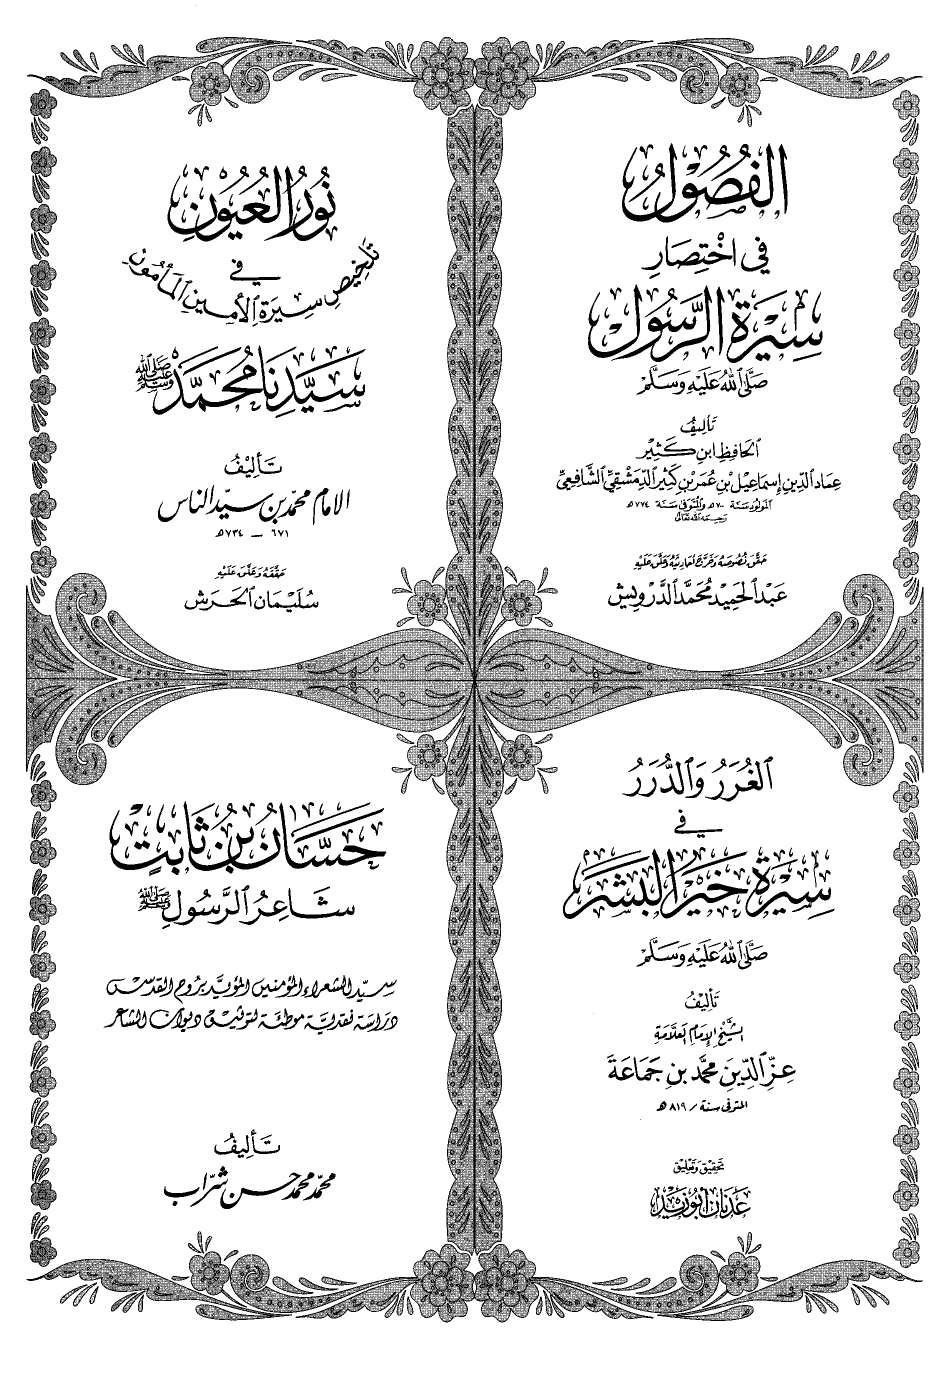 الفُصُولُ
في اخْتِصَارِ
سِيرَةِ الرَّسُولِ
صَلَّى اللهُ عَلَيْهِ وَسَلَّمَ
تَأليفُ
الحَافِظِ ابنِ كَثِيْرٍ
عِمَاد الدِّين إِسمَاعِيْل بْنِ عُمَرَ بْنِ كَثِير الدِّمَشْقِيِّ الشَّافِعِيِّ
المَولُود سَنَة ٧٠٠ هـ والمتَوَفَّى سَنَة ٧٧٤ هـ
رَحِمَهُ اللهُ تَعَالى
حَقَّقَ نُصُوصَهُ وَخَرَّجَ أحَادِيثَهُ وَعَلَّقَ عَلَيْهِ
عَبْد الحَمِيد مُحَمَّد الدَّرْوِيش
نُورُ العُيُونِ
في
تَلْخِيصِ سِيرَةِ الأَمِينِ المَأْمُونِ
سَيِّدِنَا مُحَمَّدٍ ﷺ
تَأليفُ
الإمام محمّد بن سيّد الناس
٦٧١ - ٧٣٤ هـ
حَقَّقَهُ وَعَلَّقَ عَلَيْهِ
سُلَيمَان الحَرَش
الغُرَرُ وَالدُّرَرُ
في
سِيرَةِ خَيرِ البَشَرِ
صَلَّى اللهُ عَلَيْهِ وَسَلَّمَ
تَأليفُ
الشَّيْخِ الإِمَامِ العَلَّامَةِ
عِزِّ الدِّينِ محمَّد بنِ جَمَاعَةَ
المتوفى سنة / ٨١٩ هـ
تحقيق وتعليق
عَدنَان أبُو زَيْد
حَسَّانُ بنُ ثَابتٍ
شَاعِرُ الرَّسُولِ ﷺ
سيّد الشعراء المؤمنين المؤيّد بروح القدس
دراسَة نقديّة موطئة لتوثيق ديوان الشاعر
تَأليفُ
محمّد محمد حسن شُرَّاب